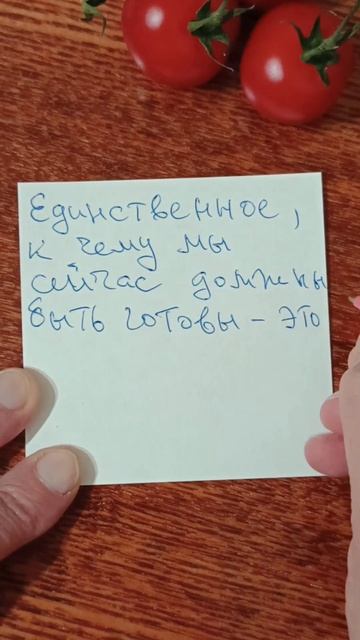 Единственное,
к чему мы
сейчас должны
быть готовы - это